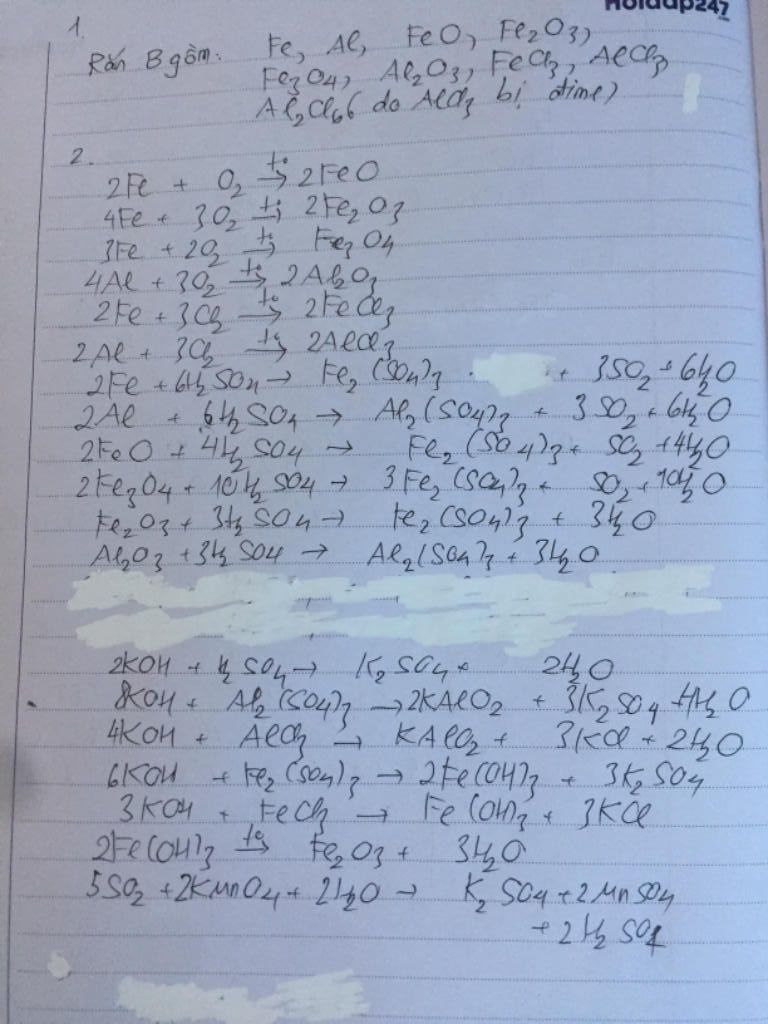 Hoidap247
1.
Rắn B gồm: Fe, Al, FeO, Fe2O3,
Fe3O4, Al2O3, FeCl3, AlCl3
Al2Cl6 (do AlCl3 bị đime)
2.
2Fe + O2 t°→ 2FeO
4Fe + 3O2 t°→ 2Fe2O3
3Fe + 2O2 t°→ Fe3O4
4Al + 3O2 t°→ 2Al2O3
2Fe + 3Cl2 t°→ 2FeCl3
2Al + 3Cl2 t°→ 2AlCl3
2Fe + 6H2SO4 → Fe2(SO4)3 + 3SO2 + 6H2O
2Al + 6H2SO4 → Al2(SO4)3 + 3SO2 + 6H2O
2FeO + 4H2SO4 → Fe2(SO4)3 + SO2 + 4H2O
2Fe3O4 + 10H2SO4 → 3Fe2(SO4)3 + SO2 + 10H2O
Fe2O3 + 3H2SO4 → Fe2(SO4)3 + 3H2O
Al2O3 + 3H2SO4 → Al2(SO4)3 + 3H2O
2KOH + H2SO4 → K2SO4 + 2H2O
8KOH + Al2(SO4)3 → 2KAlO2 + 3K2SO4 + 4H2O
4KOH + AlCl3 → KAlO2 + 3KCl + 2H2O
6KOH + Fe2(SO4)3 → 2Fe(OH)3 + 3K2SO4
3KOH + FeCl3 → Fe(OH)3 + 3KCl
2Fe(OH)3 t°→ Fe2O3 + 3H2O
5SO2 + 2KMnO4 + 2H2O → K2SO4 + 2MnSO4
+ 2H2SO4